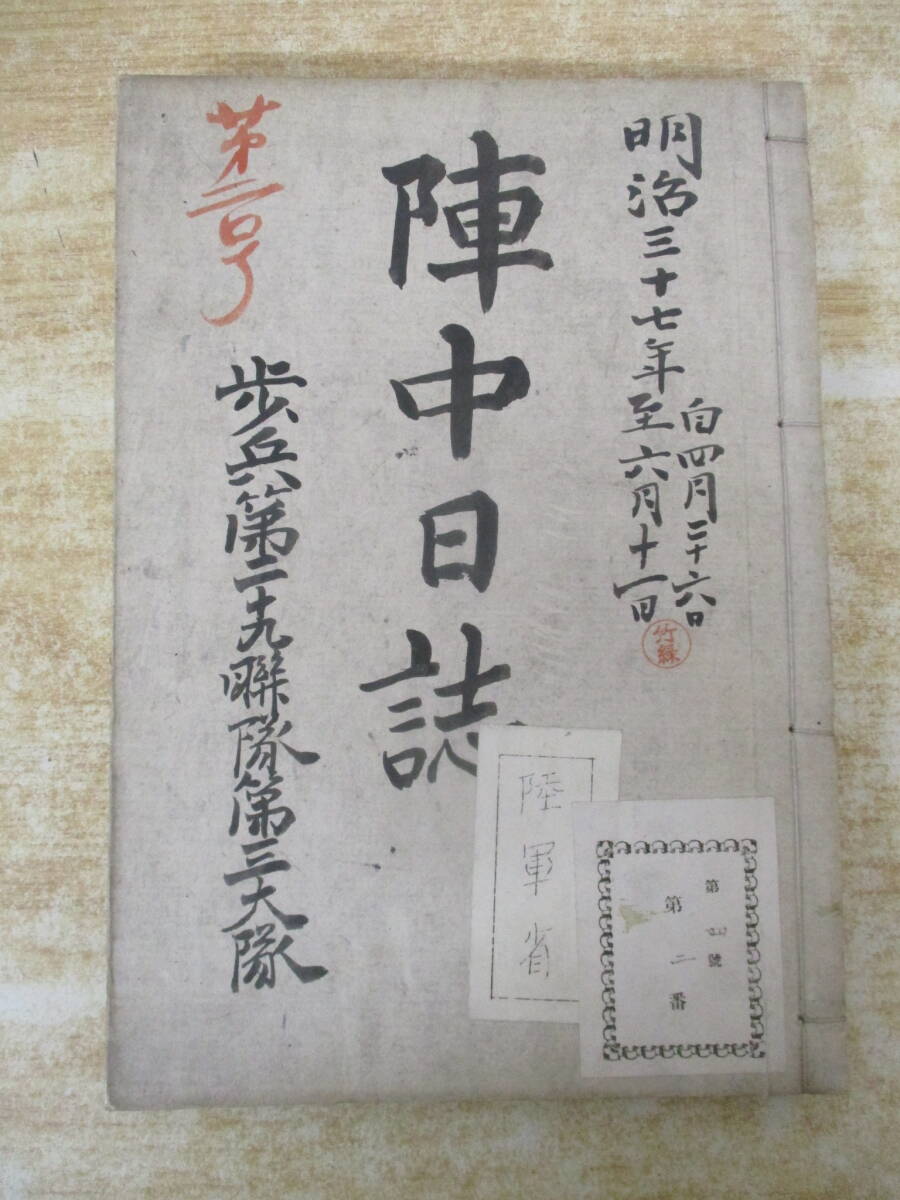 明治三十七年
自四月二十六日
至六月十一日
竹緑
陣中日誌
第二号
歩兵第二十九聯隊第三大隊
陸軍省
第四號
第二番